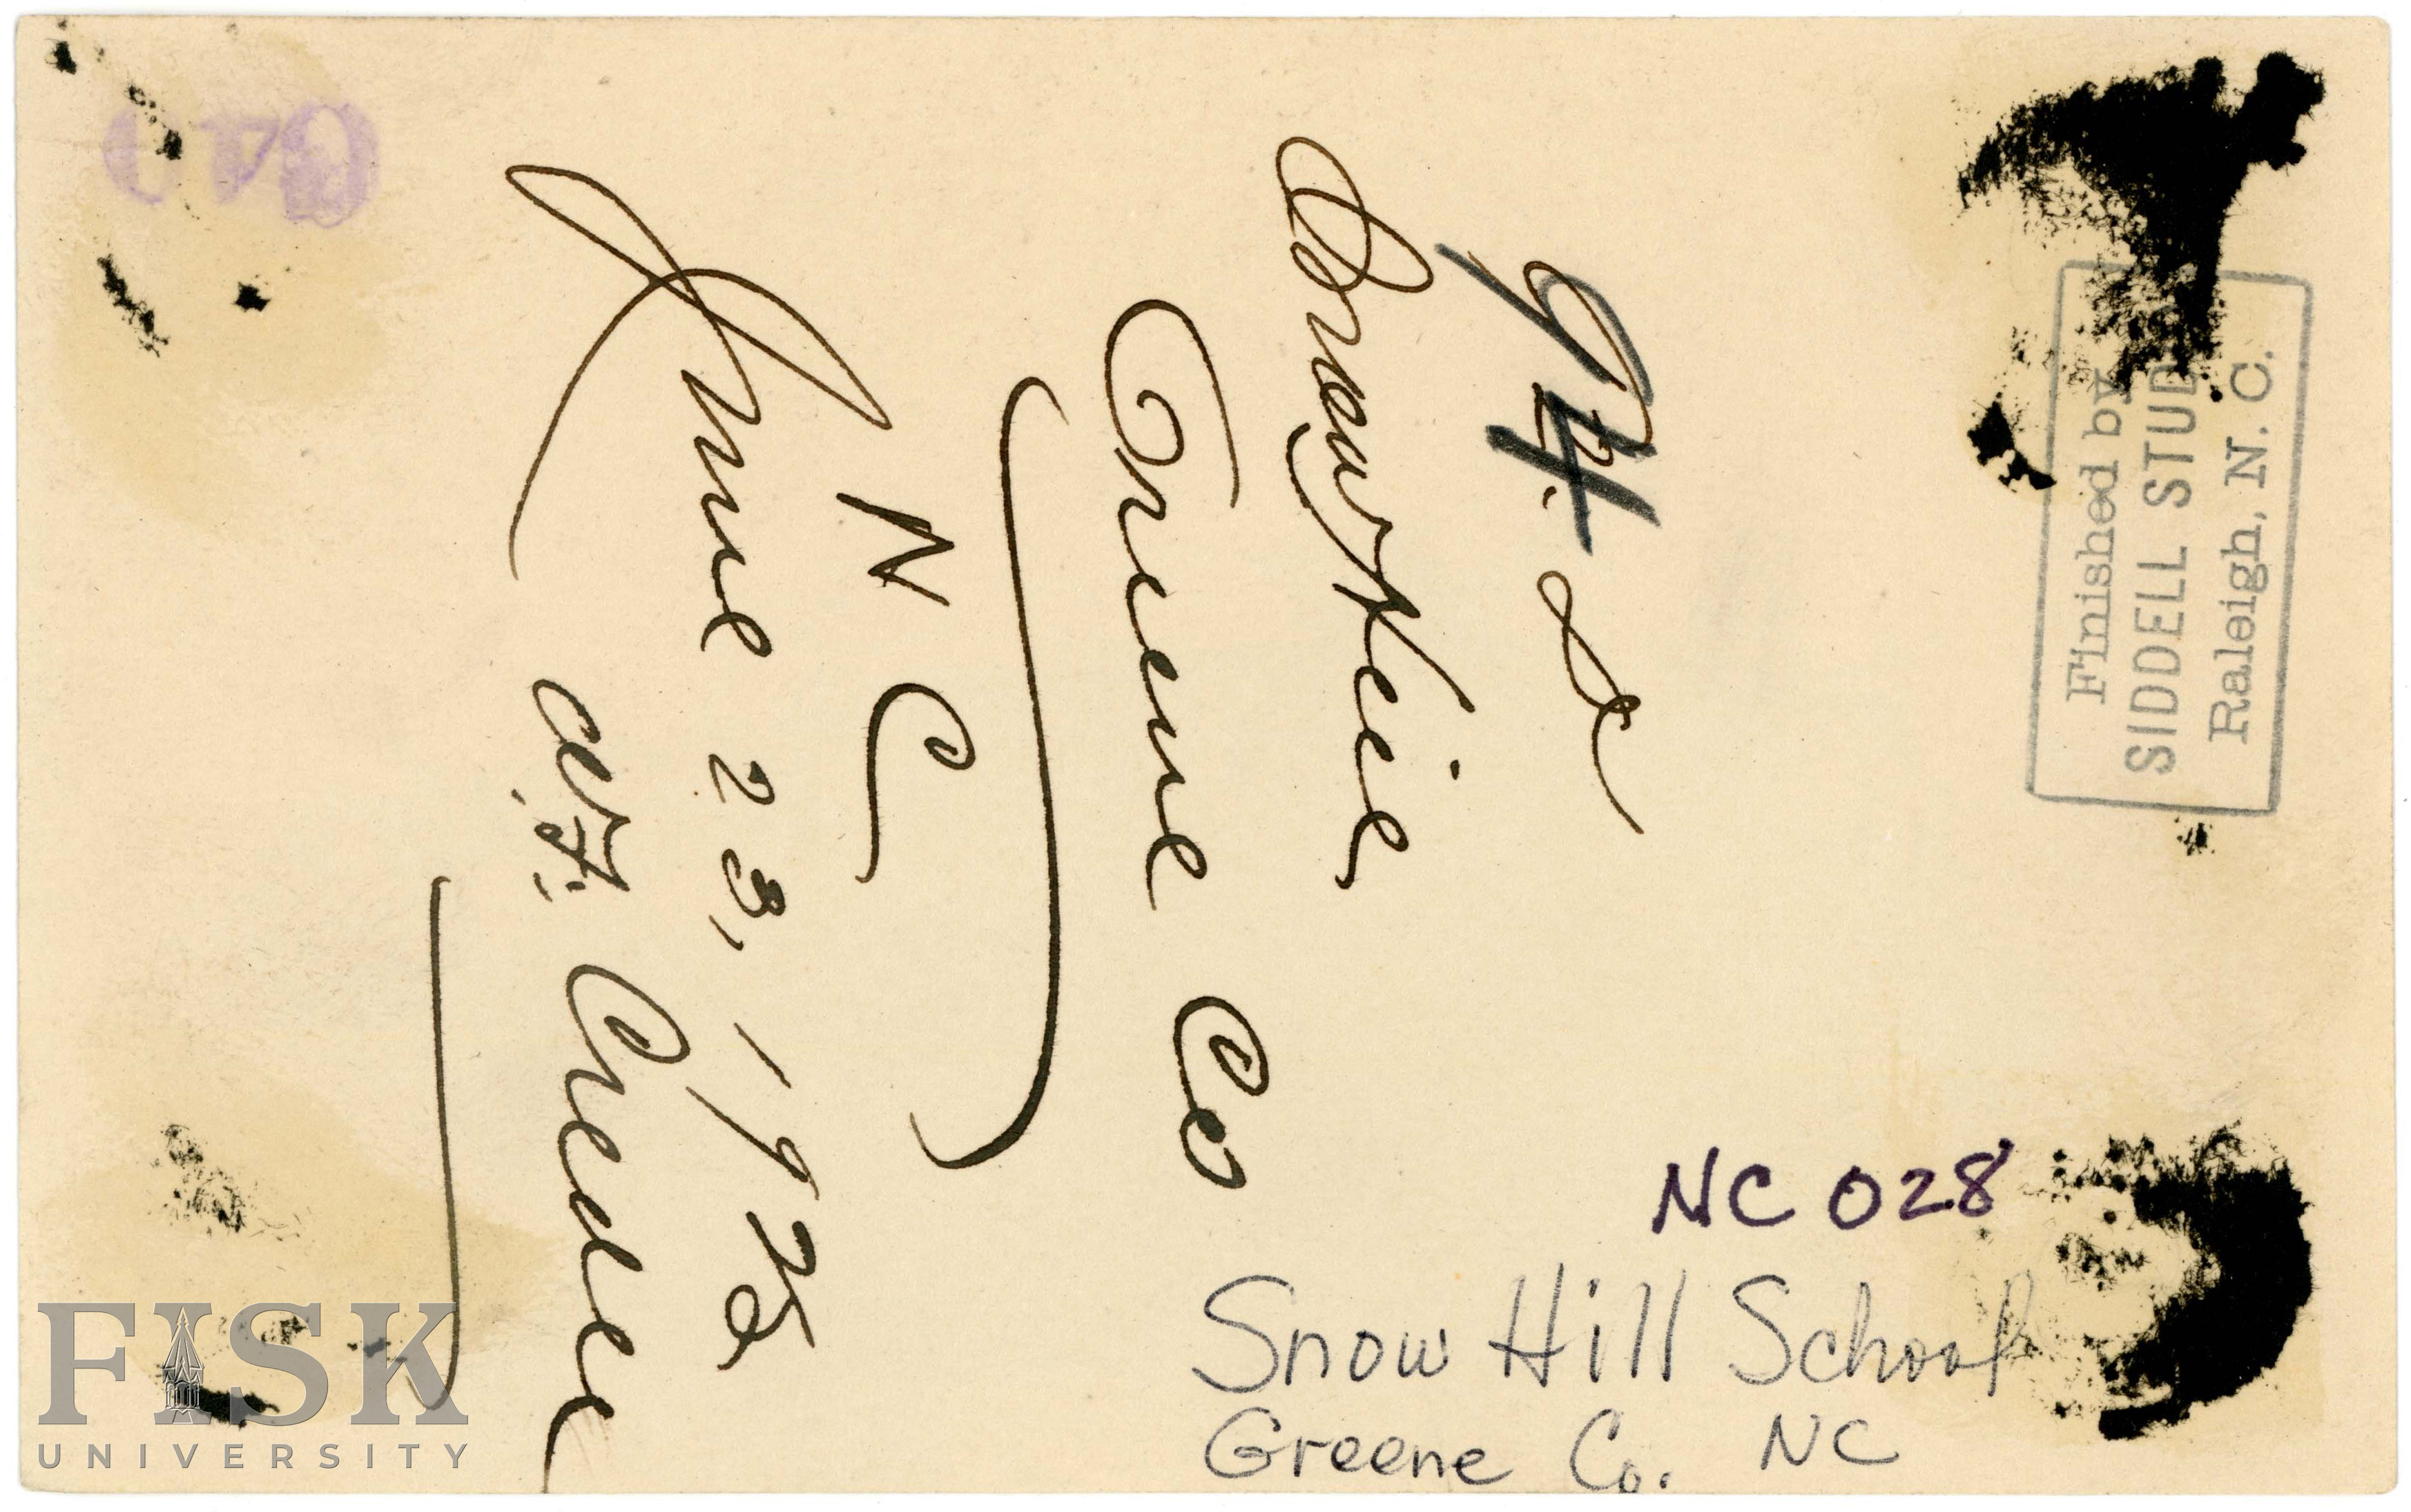 Greene Co
N C
June 23, 1925
W.F. Credle
Finished by
SIDDELL STUD
Raleigh, N. C.
NC 028
Snow Hill School
Greene Co. NC
FISK
UNIVERSITY